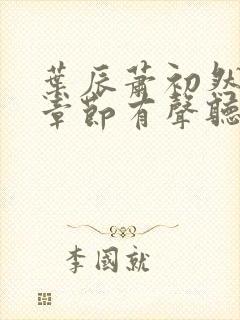 葉辰蕭初然
章節有聲聽
李國就